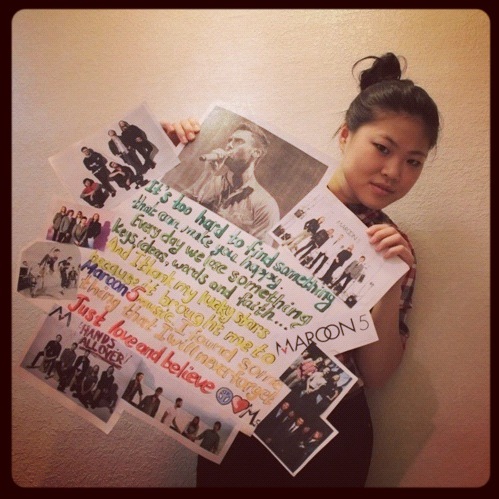 It's too hard to find something
that can make you happy.
Every day we are something
keys, ideas, words and faith...
And I thank my lucky stars
because it brought me to
Maroon 5 music. I found some
thing that I will never forget
Just love and believe
M5
MAROON 5
MAROON 5
M
"HANDS
ALL OVER"